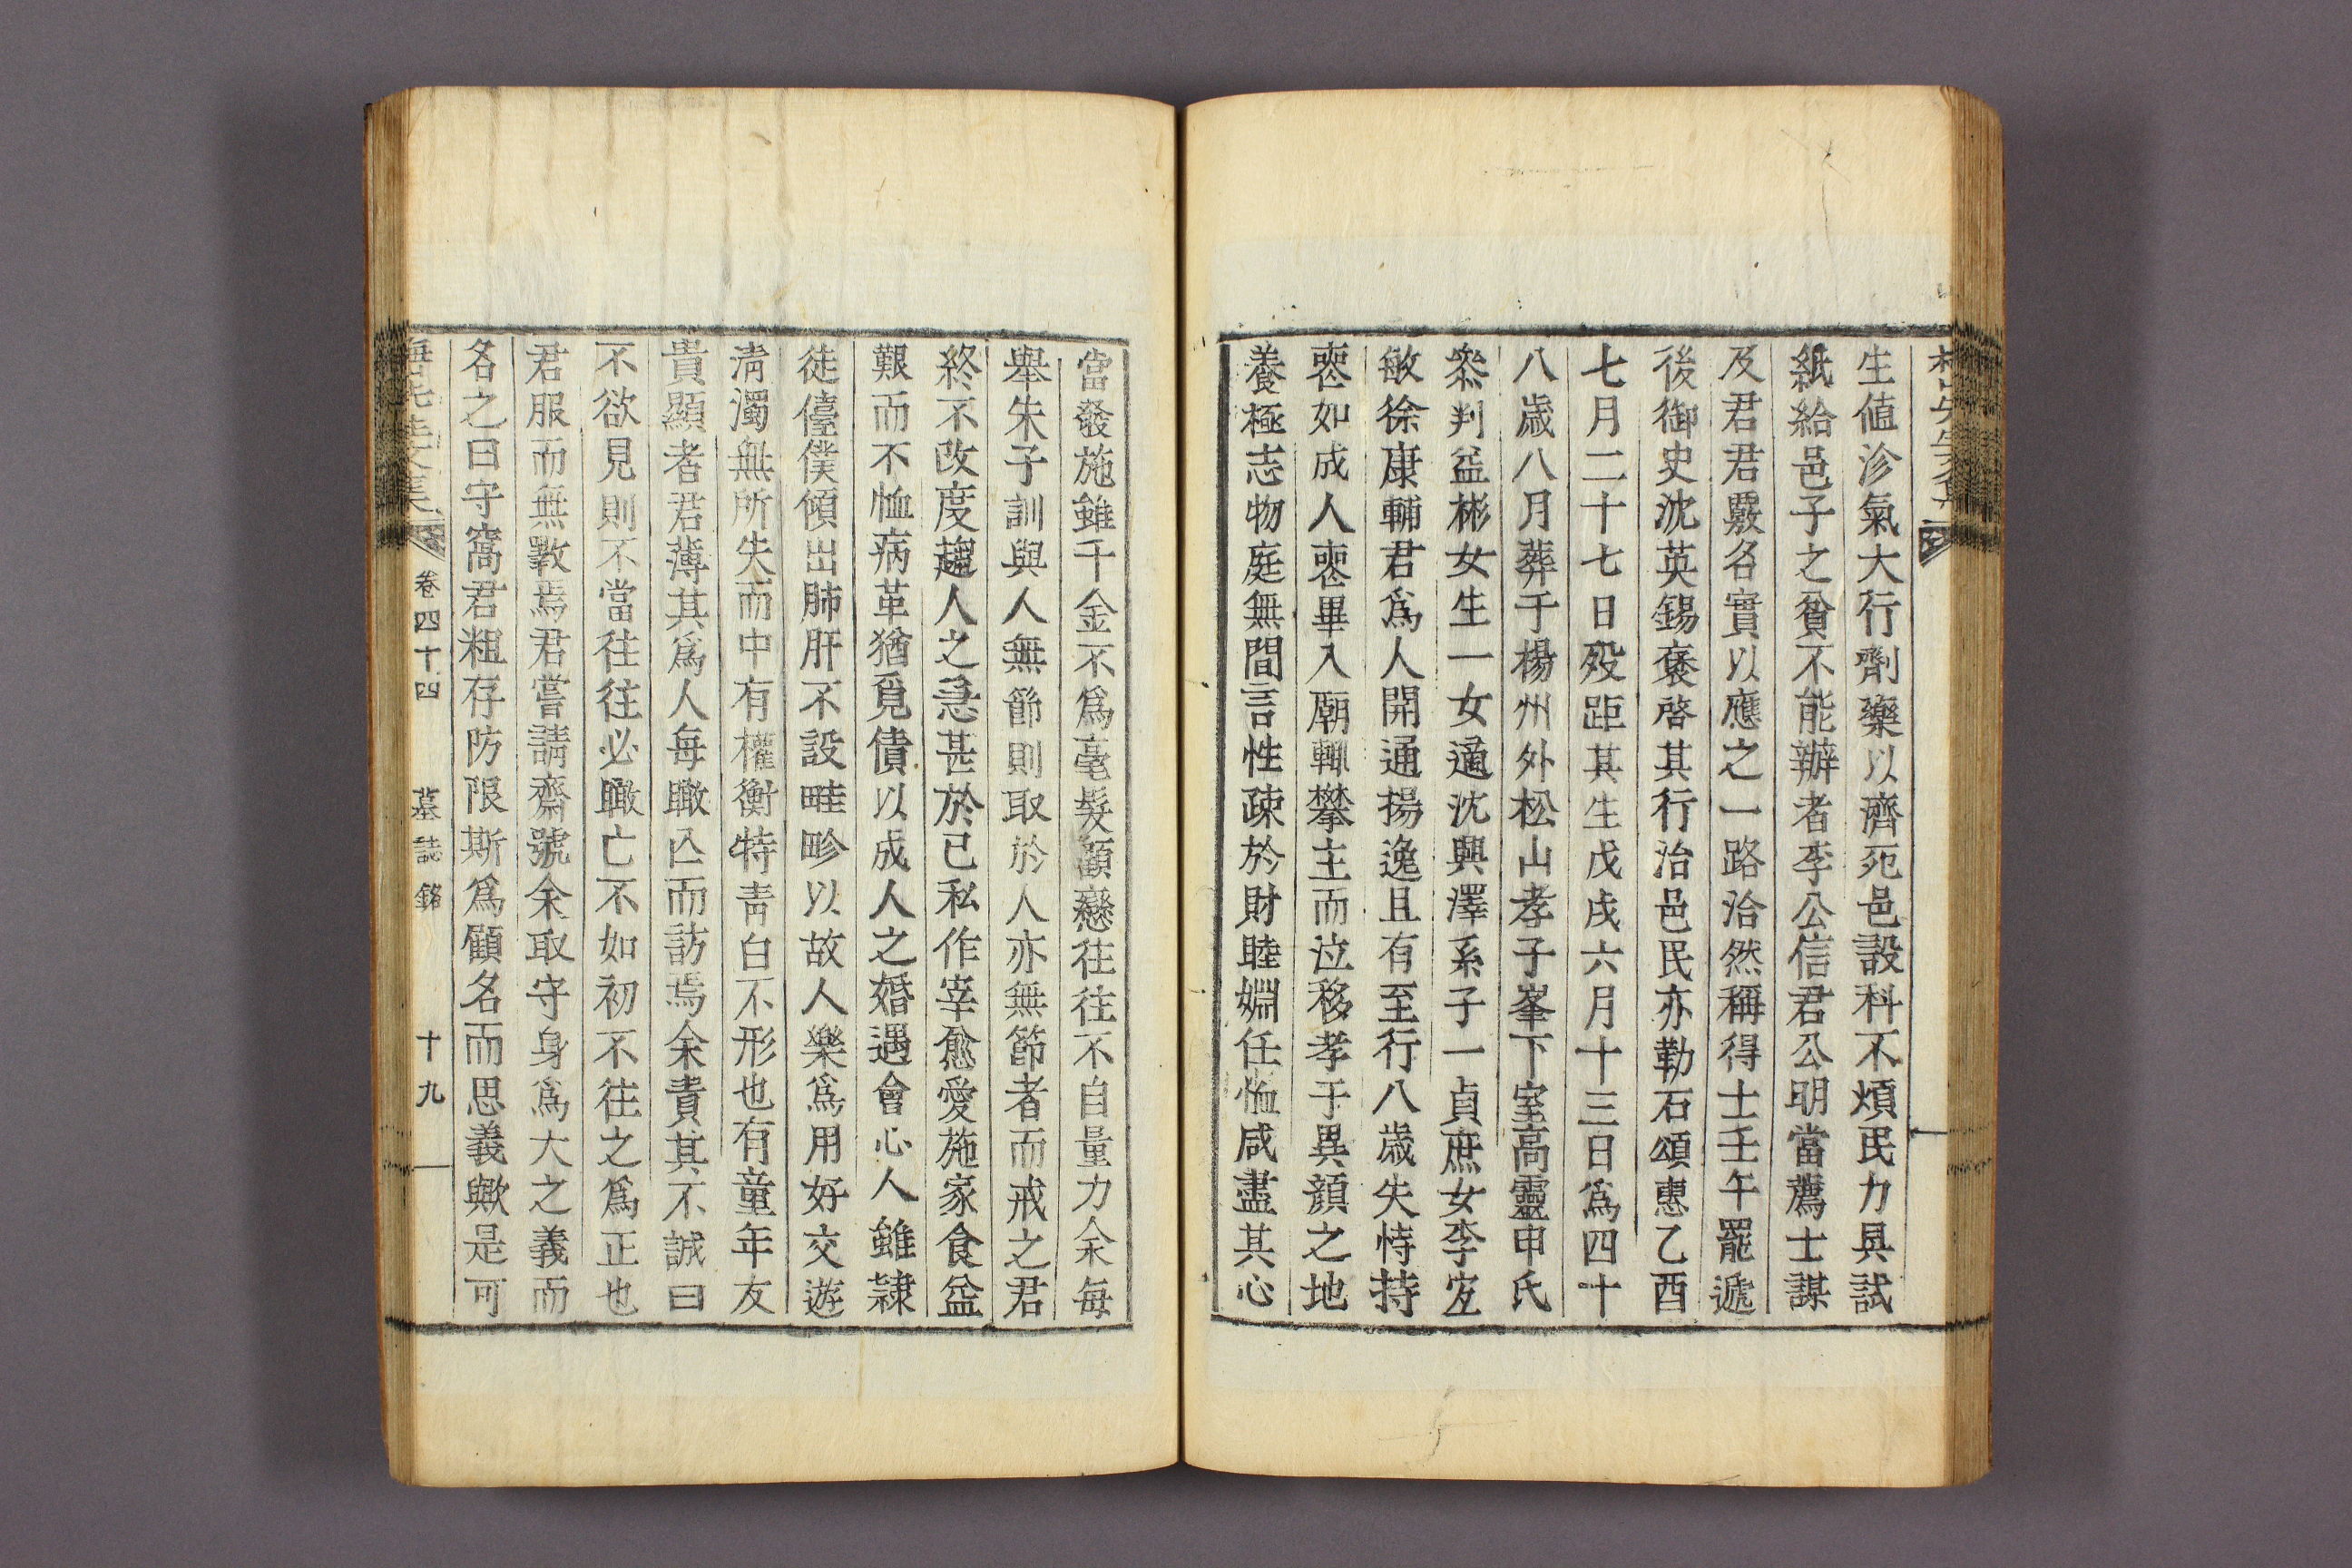 生値沴氣大行劑藥以濟死邑設科不煩民力具試
紙給邑子之貧不能辦者李公信君公明當薦士謀
及君君覈名實以應之一路洽然稱得士壬午罷遞
後御史沈英錫褒啓其行治邑民亦勒石頌惠乙酉
七月二十七日歿距其生戊戌六月十三日爲四十
八歲八月葬于楊州外松山孝子峯下室高靈申氏
叅判益彬女生一女適沈興澤系子一貞庶女李㝎
敏徐康輔君爲人開通揚逸且有至行八歲失恃持
喪如成人喪畢入廟輒攀主而泣移孝于異顔之地
養極志物庭無間言性疎於財睦婣任恤咸盡其心
當發施雖千金不爲毫髮顧戀往往不自量力余每
舉朱子訓與人無節則取於人亦無節者而戒之君
終不改度趨人之急甚於已私作宰愈愛施家食益
艱而不恤病革猶覓債以成人之婚遇會心人雖隷
徒儓僕傾出肺肝不設畦畛以故人樂爲用好交遊
淸濁無所失而中有權衡特靑白不形也有童年友
貴顯者君薄其爲人每瞰亾而訪焉余責其不誠曰
不欲見則不當往往必瞰亡不如初不往之爲正也
君服而無斁焉君嘗請齋號余取守身爲大之義而
名之曰守窩君粗存防限斯爲顧名而思義歟是可
卷四十四 墓誌銘 十九